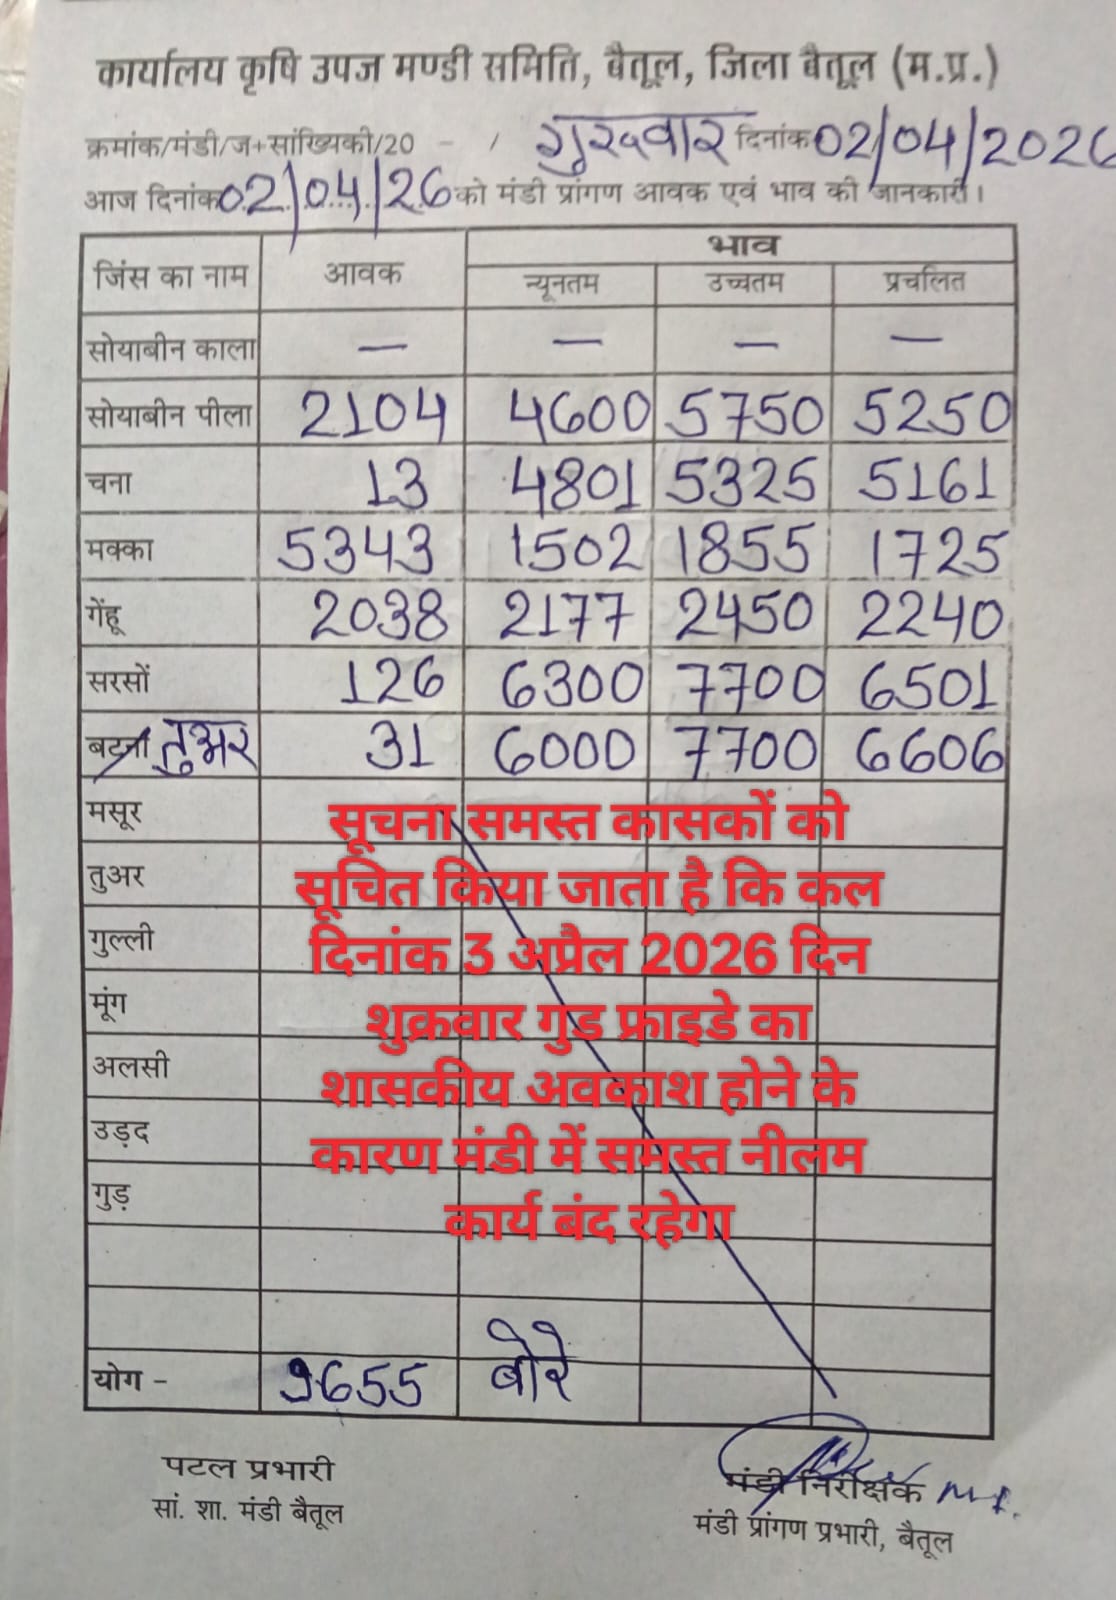 कार्यालय कृषि उपज मण्डी समिति, बैतूल, जिला बैतूल (म.प्र.)
क्रमांक/मंडी/ज+सांख्यिकी/20 - / गुरुवार दिनांक 02/04/2026
आज दिनांक 02/04/26 को मंडी प्रांगण आवक एवं भाव की जानकारी।
जिंस का नाम आवक भाव
न्यूनतम उच्चतम प्रचलित
सोयाबीन काला — — — —
सोयाबीन पीला 2104 4600 5750 5250
चना 13 4801 5325 5161
मक्का 5343 1502 1855 1725
गेंहू 2038 2177 2450 2240
सरसों 126 6300 7700 6501
बटना तुअर 31 6000 7700 6606
मसूर
तुअर
गुल्ली
मूंग
अलसी
उड़द
गुड़
सूचना समस्त कासकों को
सूचित किया जाता है कि कल
दिनांक 3 अप्रैल 2026 दिन
शुक्रवार गुड फ्राइडे का
शासकीय अवकाश होने के
कारण मंडी में समस्त नीलम
कार्य बंद रहेगा
योग - 9655 बोरे
पटल प्रभारी
सां. शा. मंडी बैतूल
मंडी निरीक्षक
मंडी प्रांगण प्रभारी, बैतूल